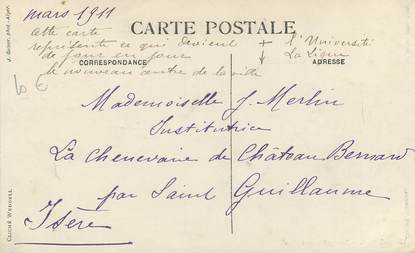 mars 1911
CARTE POSTALE
cette carte
représente ce qui devient
de jour en jour
le nouveau centre de la ville
+ l'Université
La Ligne
CORRESPONDANCE
ADRESSE
Mademoiselle J. Merlin
Institutrice
La Chenevaire de Château Bernard
par Saint Guillaume
Isère
J. Geiser, phot.-Alger.